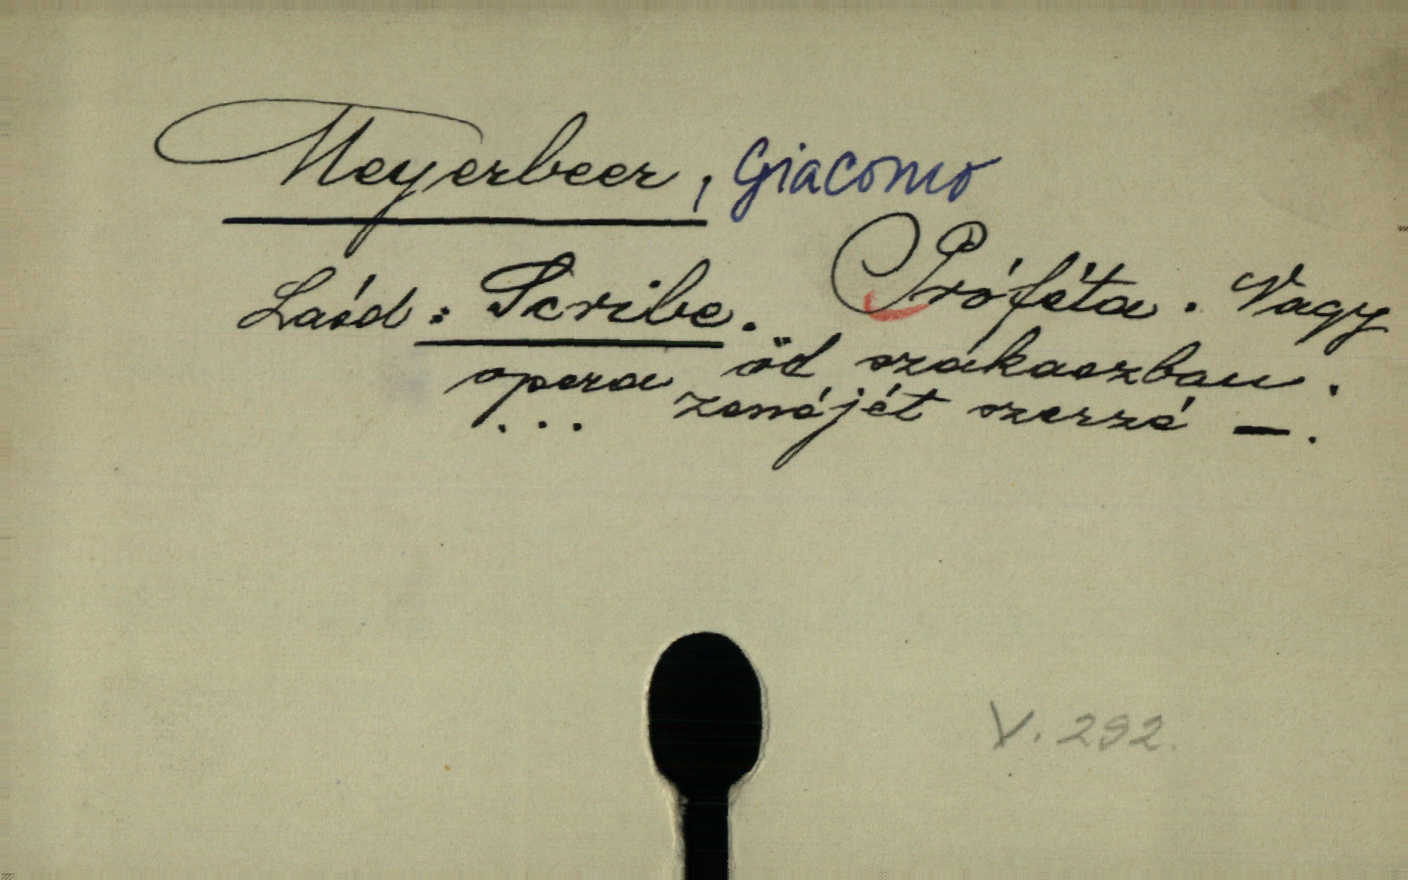 Meyerbeer, Giacomo
Lásd: Scribe. Próféta. Nagy
opera öt szakaszban.
... zenéjét szerzé —.
V. 292.